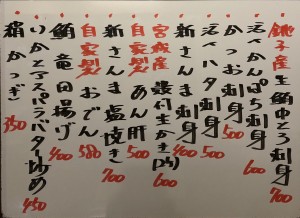 銚子産生鮪中とろ刺身 700
活〆かんぱち刺身 600
かつお刺身 500
活〆ハタ刺身 500
新さんま刺身 400
宮城産殻付生かき 600
自家製あん肝 500
新さんま塩焼き 700
自家製おでん 380
鮪竜田揚げ 400
いかとアスパラバター炒め 450
絹かつぎ 350